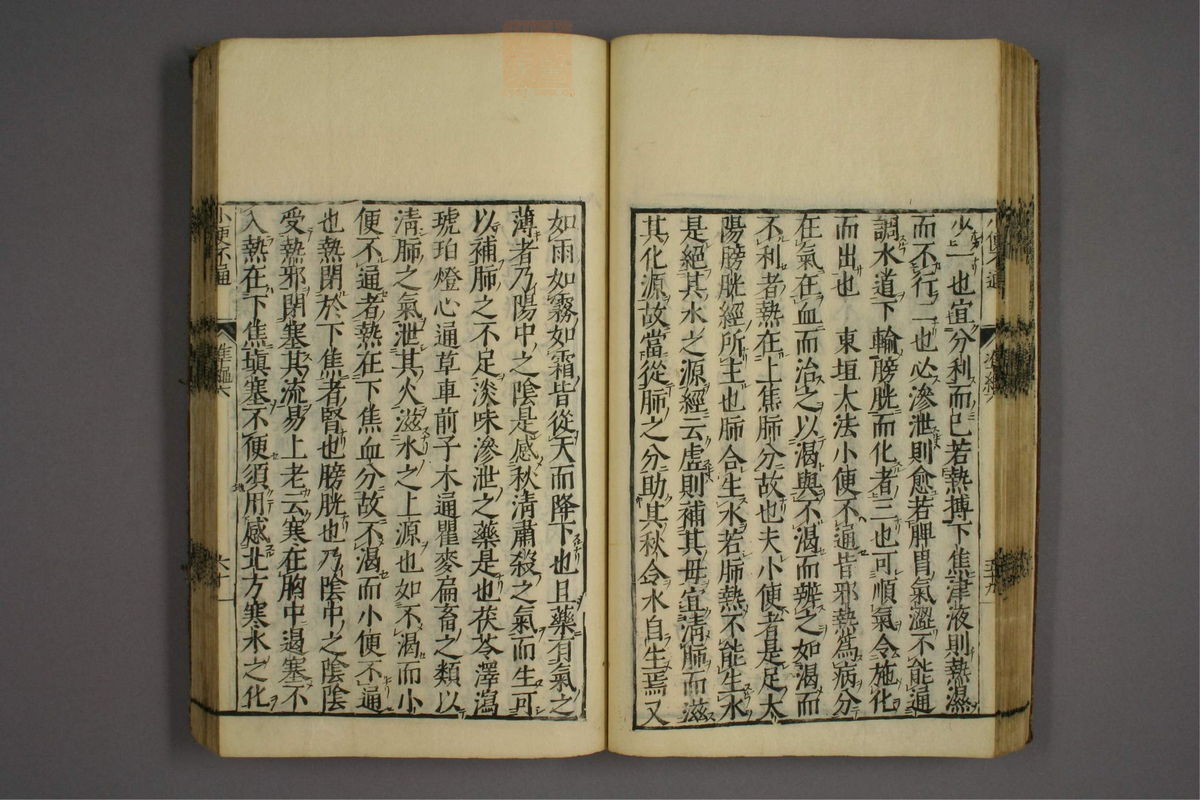 少一也宜分利而已若熱搏下焦津液則熱濕
而不行一也必滲泄則愈若脾胃氣澀不能通
調水道下輸膀胱而化者三也可順氣令施化
而出也　東垣大法小便不通皆邪熱爲病分
在氣在血而治之以渴與不渴而辨之如渴而
不利者熱在上焦肺分故也夫小便者是足太
陽膀胱經所主也肺合生水若肺熱不能生水
是絕其水之源經云虛則補其母宜淸肺而滋
其化源故當從肺之分助其秋令水自生焉又
如雨如霧如霜皆從天而降下也且藥有氣之
薄者乃陽中之陰是感秋淸肅殺之氣而生可
以補肺之不足淡味滲泄之藥是也茯苓澤瀉
琥珀燈心通草車前子木通瞿麥扁畜之類以
淸肺之氣泄其火滋水之上源也如不渴而小
便不通者熱在下焦血分故不渴而小便不通
也熱閉於下焦者腎也膀胱也乃陰中之陰陰
受熱邪閉塞其流易上老云寒在胸中遏塞不
入熱在下焦塡塞不便須用感北方寒水之化
小便不通